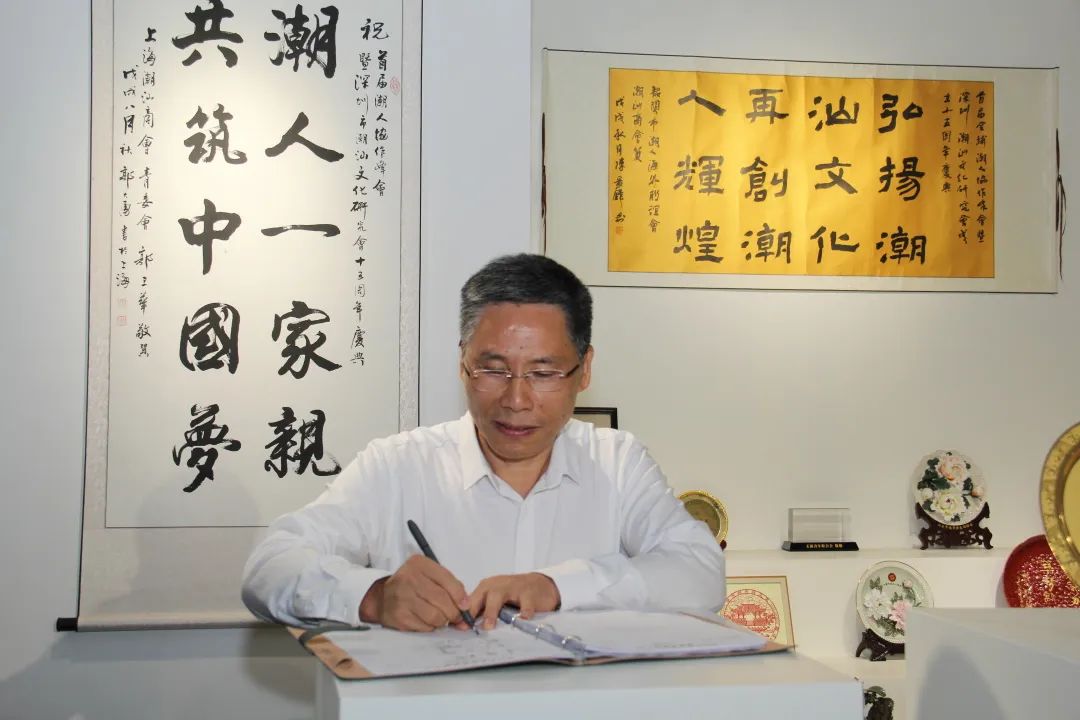 祝 首届潮人協作峰會
暨深圳市潮汕文化研究會十五周年慶典
潮人一家親
共筑中國夢
上海潮汕商會 青委會 郭 華 敬賀
戊戌八月秋 郭 書於上海
首届全球潮人協作峰會暨
深圳潮汕文化研究會成
立十五周年慶典
弘揚潮
汕文化
再創潮
人輝煌
韶關市潮人海外聯誼會
潮汕商會賀
戊戌秋月陳 書